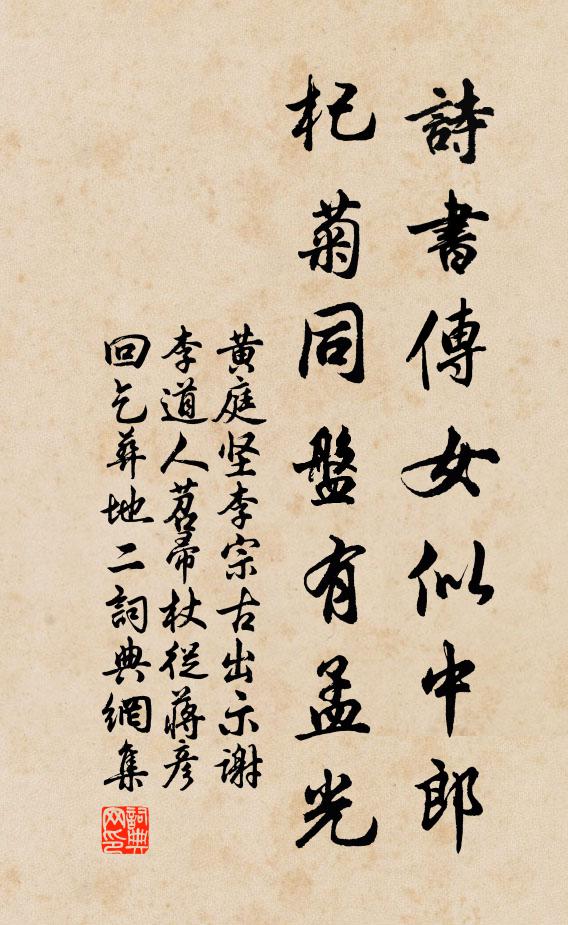 詩書傳女似中郎
杞菊同盤有孟光
黄庭坚李宗古出示謝
李道人苕帚杖從蔣彦
回乞葬地二詞典網集
詞典
网印